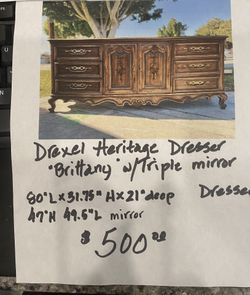 Drexel Heritage Dresser
"Brittany" w/Triple mirror
80"L x 31.75" H x 21" deep Dresser
47"H 49.5"L mirror
$500.00